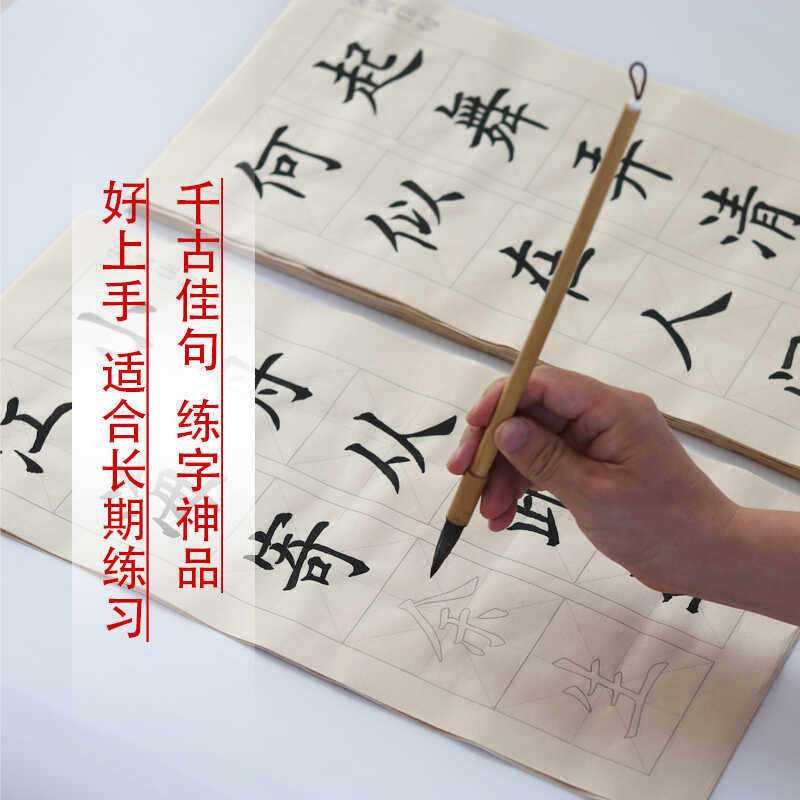 千古佳句 练字神品
好上手 适合长期练习
起舞弄清
何似在人
小舟从此
江海寄余生